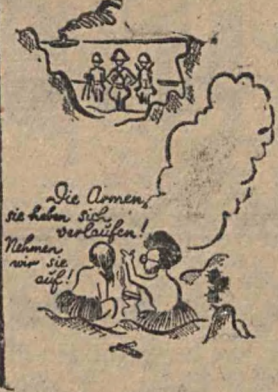 Die Armen,
sie haben sich
verlaufen!
Nehmen
wir sie
auf!